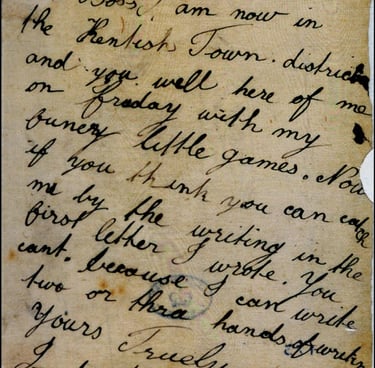 Boss, I am now in
the Kentish Town. district
and you well here of me
on fraday with my
funery little games. Now
if you think you can catch
me by the writing in the
first letter I wrote. You
cant. because I can write
two or thra hands of writin
Yours Truely